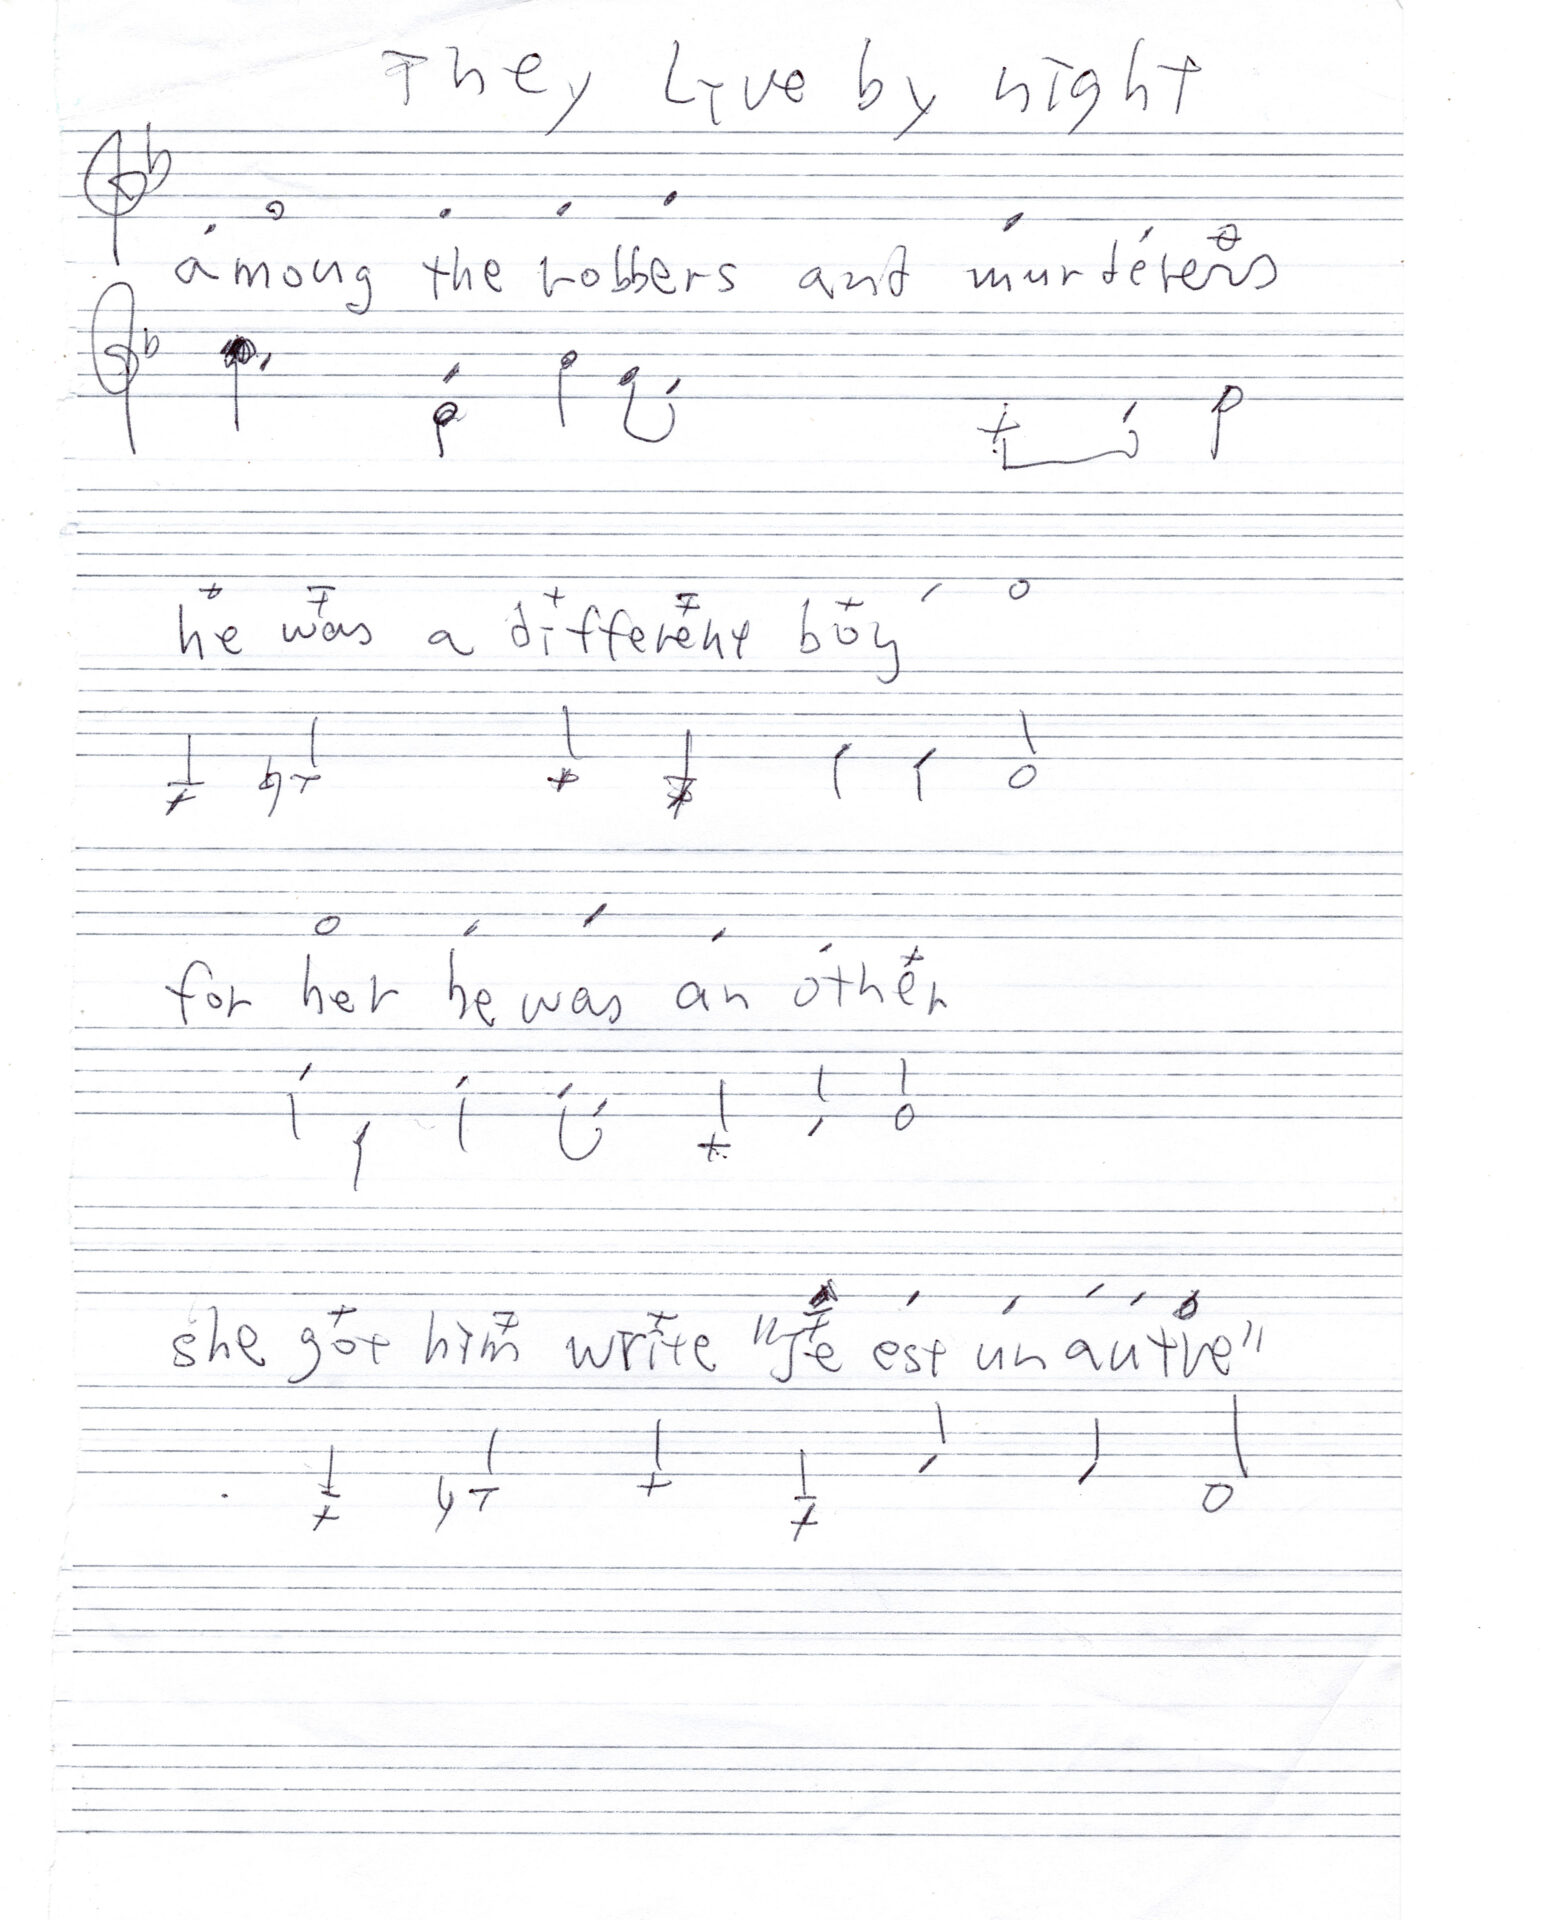 They Live by night
among the robbers and murderers
he was a different boy
for her he was an other
she got him write "Je est un autre"